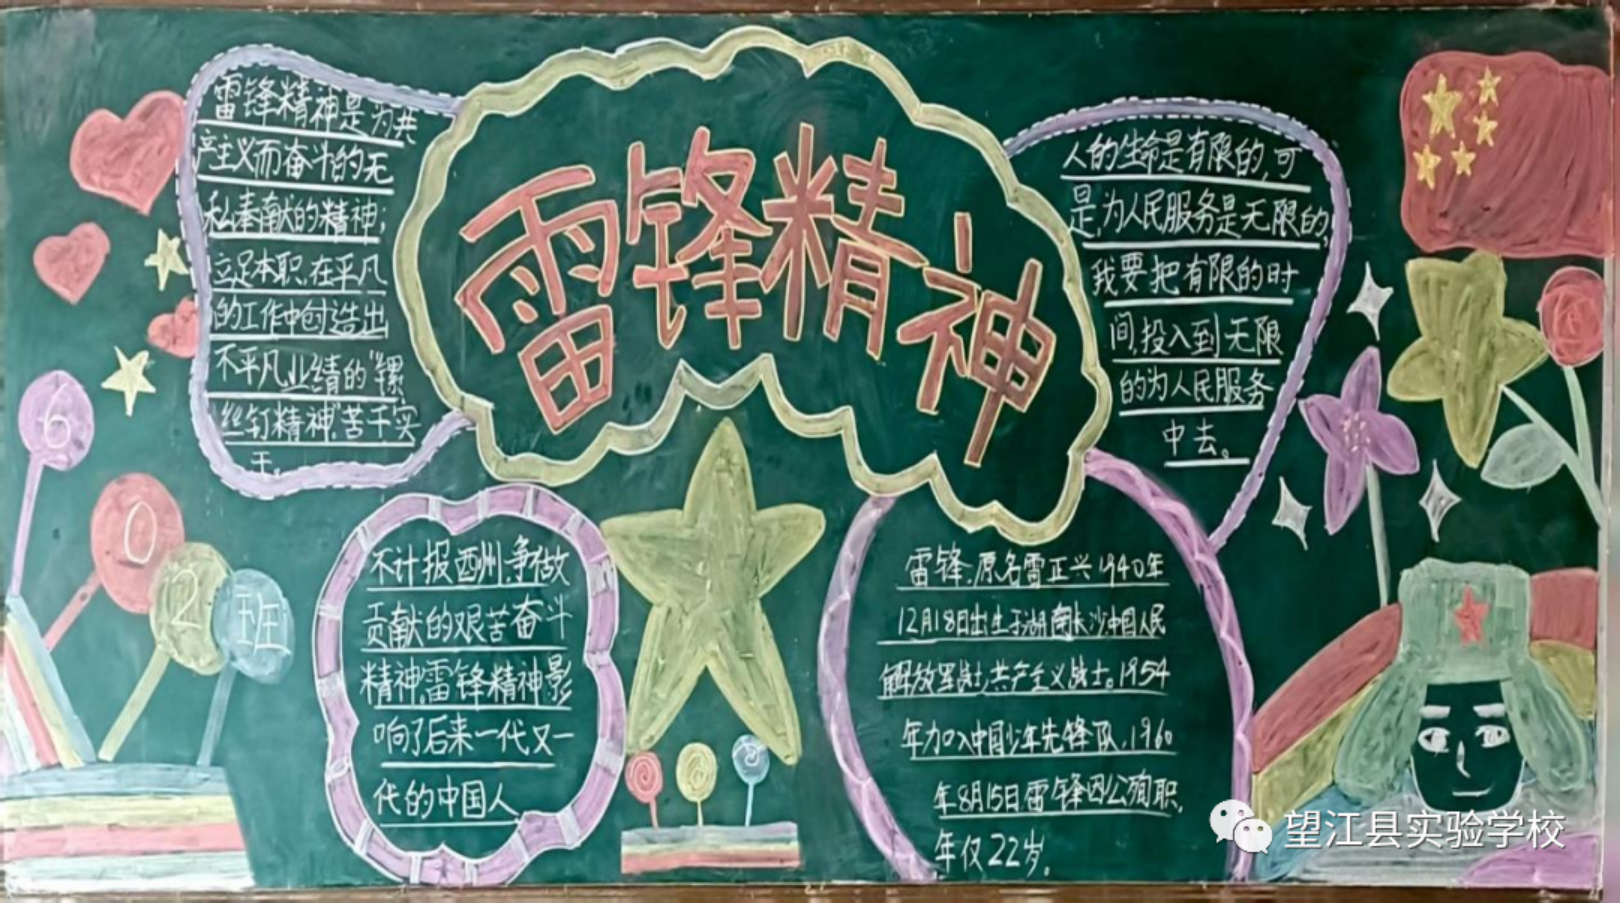 雷锋精神
雷锋精神是为共
产主义而奋斗的无
私奉献的精神;
立足本职,在平凡
的工作中创造出
不平凡业绩的"螺
丝钉精神"苦干实
干。
人的生命是有限的,可
是,为人民服务是无限的,
我要把有限的时
间,投入到无限
的为人民服务
中去。
602班
不计报酬,争做
贡献的艰苦奋斗
精神,雷锋精神影
响了后来一代又一
代的中国人
雷锋,原名雷正兴1940年
12月18日出生于湖南长沙中国人民
解放军战士,共产主义战士。1954
年加入中国少年先锋队,1960
年8月15日雷锋因公殉职,
年仅22岁。
望江县实验学校